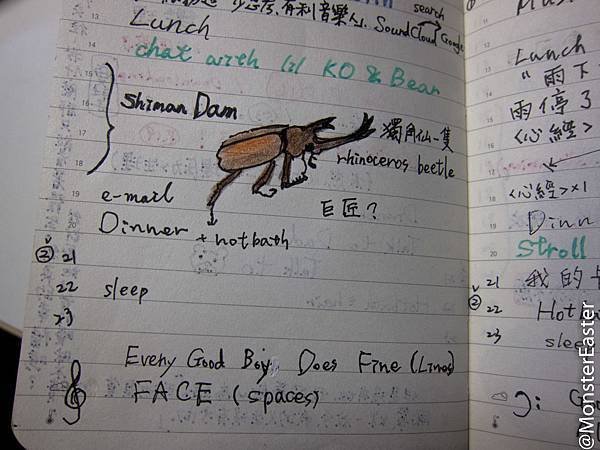 少字存,有利音樂人. SoundCloud Google
search
13 Lunch
14 chat with KO & Bean
15
16 Shiman Dam
17 獨角仙一隻
rhinoceros beetle
18
19 e-mail 巨匠?
20 Dinner + hot bath
② 21
22 sleep
23
Every Good Boy Does Fine (Lines)
FACE (spaces)
11
Lunch
"雨下
雨停了
<心經>
18 <心經>×1
19 Dinn
20 Stroll
21 我的
② 22 Hot
23 sle
@MonsterEaster